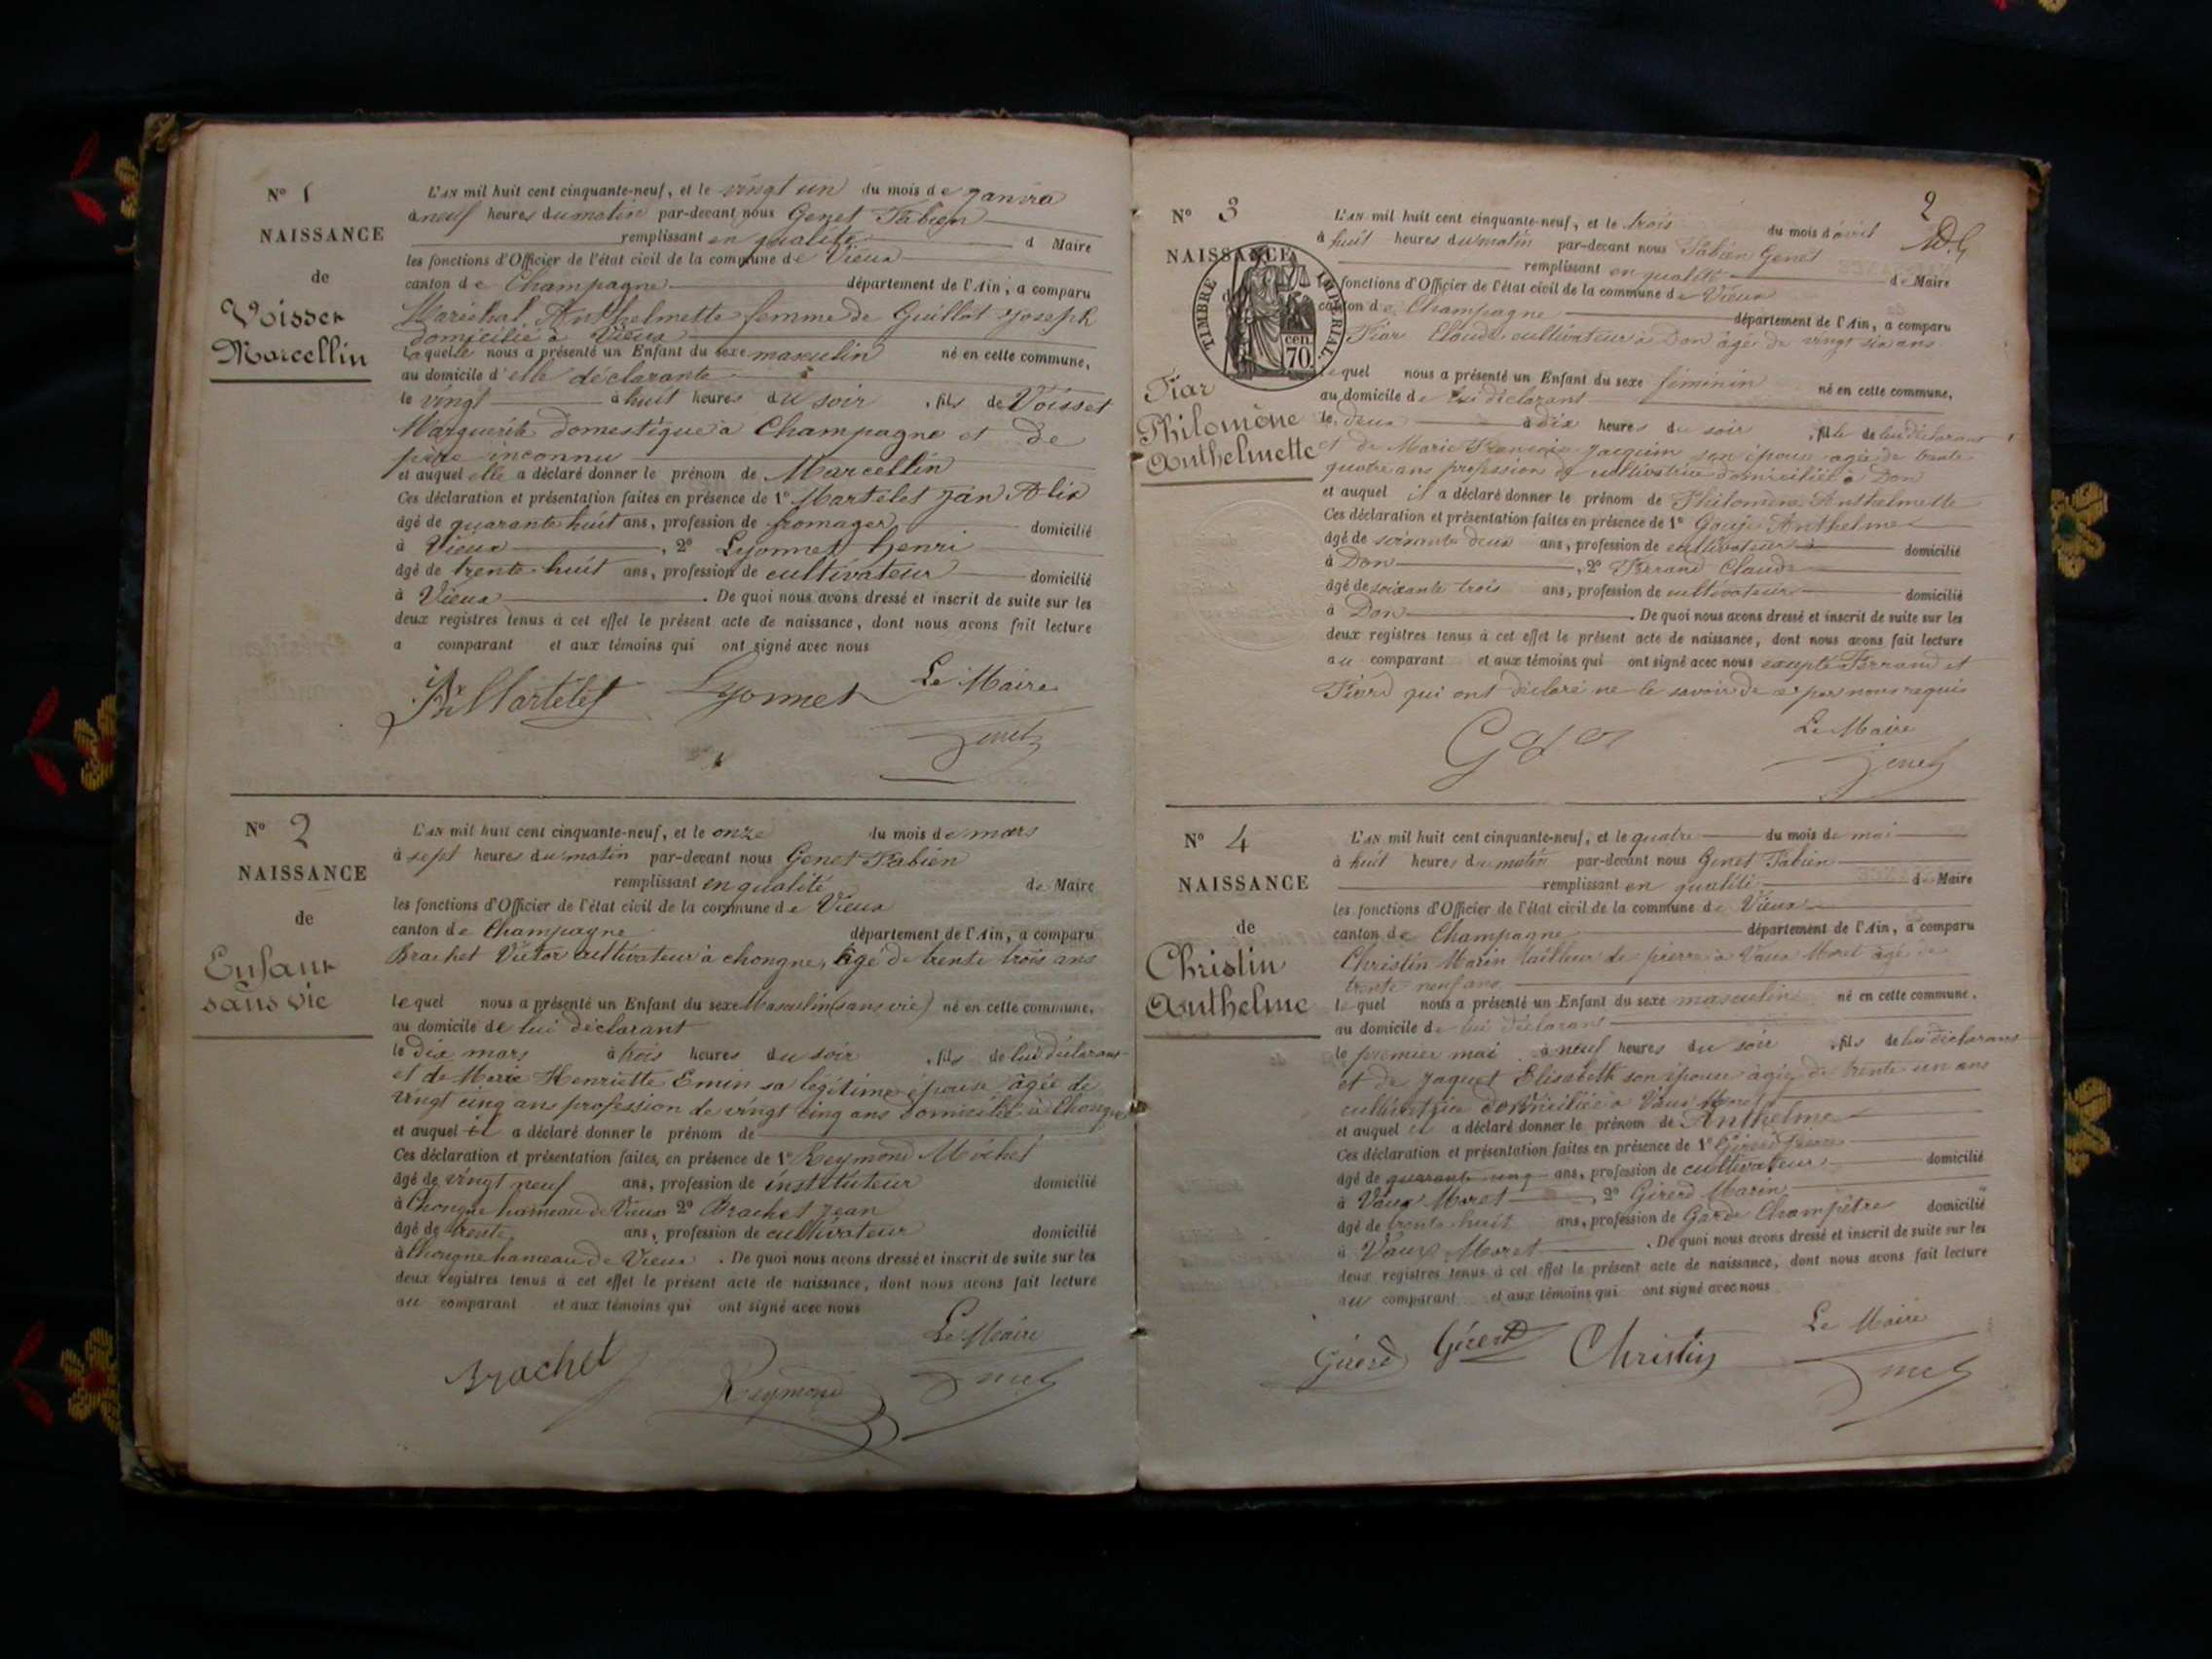 N° 1
NAISSANCE
de
Voisset
Marcellin
L'AN mil huit cent cinquante-neuf, et le vingt un du mois de
à neuf heures du matin par-devant nous Genet Fabien
remplissant en qualité d Maire
les fonctions d'Officier de l'état civil de la commune de Vieux
canton de Champagne département de l'Ain, a comparu
Maréchal Anthelmette femme de Guillot Joseph
domicilié à Vieux
laquelle nous a présenté un Enfant du sexe masculin né en cette commune,
au domicile d'elle déclarante
le vingt à huit heures du soir, fils de Voisset
Marguerite domestique à Champagne et de
père inconnu
et auquel elle a déclaré donner le prénom de Marcellin
Ces déclaration et présentation faites en présence de 1° Martelet
âgé de quarante huit ans, profession de fromager domicilié
à Vieux, 2° Lyonnet henri
âgé de trente huit ans, profession de cultivateur domicilié
à Vieux. De quoi nous avons dressé et inscrit de suite sur les
deux registres tenus à cet effet le présent acte de naissance, dont nous avons fait lecture
a comparant et aux témoins qui ont signé avec nous
Martelet Lyonnet Le Maire
Genet
N° 2
NAISSANCE
de
Enfant
sans vie
L'AN mil huit cent cinquante-neuf, et le onze du mois de mars
à sept heures du matin par-devant nous Genet Fabien
remplissant en qualité de Maire
les fonctions d'Officier de l'état civil de la commune de Vieux
canton de Champagne département de l'Ain, a comparu
Brachet Victor cultivateur à chongne, âgé de trente trois ans
lequel nous a présenté un Enfant du sexe Masculin (sans vie) né en cette commune,
au domicile de lui déclarant
le dix mars à trois heures du soir, fils de lui déclarant
et de Marie Henriette Emin sa légitime épouse âgée de
vingt cinq ans profession de vingt cinq ans domiciliée à Chongne
et auquel il a déclaré donner le prénom de
Ces déclaration et présentation faites en présence de 1° Reymond Michel
âgé de vingt neuf ans, profession de instituteur domicilié
à Chongne hameau de Vieux 2° Brachet Jean
âgé de trente ans, profession de cultivateur domicilié
à Chongne hameau de Vieux. De quoi nous avons dressé et inscrit de suite sur les
deux registres tenus à cet effet le présent acte de naissance, dont nous avons fait lecture
au comparant et aux témoins qui ont signé avec nous
Le Maire
Brachet Reymond Genet
2
N° 3
NAISSANCE
de
TIMBRE IMPÉRIAL.
70 cen.
Fiar
Philomène
Anthelmette
L'AN mil huit cent cinquante-neuf, et le trois du mois d'avril
à huit heures du matin par-devant nous Fabien Genet
remplissant en qualité de Maire
les fonctions d'Officier de l'état civil de la commune de Vieux
canton de Champagne département de l'Ain, a comparu
Fiar Claude cultivateur à Don âgé de vingt six ans
lequel nous a présenté un Enfant du sexe féminin né en cette commune,
au domicile de lui déclarant
le deux à dix heures du soir, fille de lui déclarant
et de Marie Françoise Jacquin son épouse agée de trente
quatre ans profession de cultivatrice domiciliée à Don
et auquel il a déclaré donner le prénom de Philomène Anthelmette
Ces déclaration et présentation faites en présence de 1° Anthelme
âgé de soixante deux ans, profession de cultivateur domicilié
à Don, 2° Ferrand Claude
âgé de soixante trois ans, profession de cultivateur domicilié
à Don. De quoi nous avons dressé et inscrit de suite sur les
deux registres tenus à cet effet le présent acte de naissance, dont nous avons fait lecture
au comparant et aux témoins qui ont signé avec nous excepté Ferrand et
qui ont déclaré ne le savoir de ce par nous requis
Le Maire
Genet
N° 4
NAISSANCE
de
Christin
Anthelme
L'AN mil huit cent cinquante-neuf, et le quatre du mois de mai
à huit heures du matin par-devant nous Genet Fabien
remplissant en qualité de Maire
les fonctions d'Officier de l'état civil de la commune de Vieux
canton de Champagne département de l'Ain, a comparu
Christin Marin tailleur de pierre à Vaux Moret âgé de
trente neuf ans
lequel nous a présenté un Enfant du sexe masculin né en cette commune,
au domicile de lui déclarant
le premier mai à neuf heures du soir, fils de lui déclarant
et de Jaquet Elisabeth son épouse âgée de trente un ans
cultivatrice domiciliée à Vaux Moret
et auquel il a déclaré donner le prénom de Anthelme
Ces déclaration et présentation faites en présence de 1° Girerd
âgé de quarante cinq ans, profession de cultivateur domicilié
à Vaux Moret, 2° Girerd Marin
âgé de trente huit ans, profession de Garde Champêtre domicilié
à Vaux Moret. De quoi nous avons dressé et inscrit de suite sur les
deux registres tenus à cet effet le présent acte de naissance, dont nous avons fait lecture
au comparant et aux témoins qui ont signé avec nous
Le Maire
Girerd Girerd Christin Genet